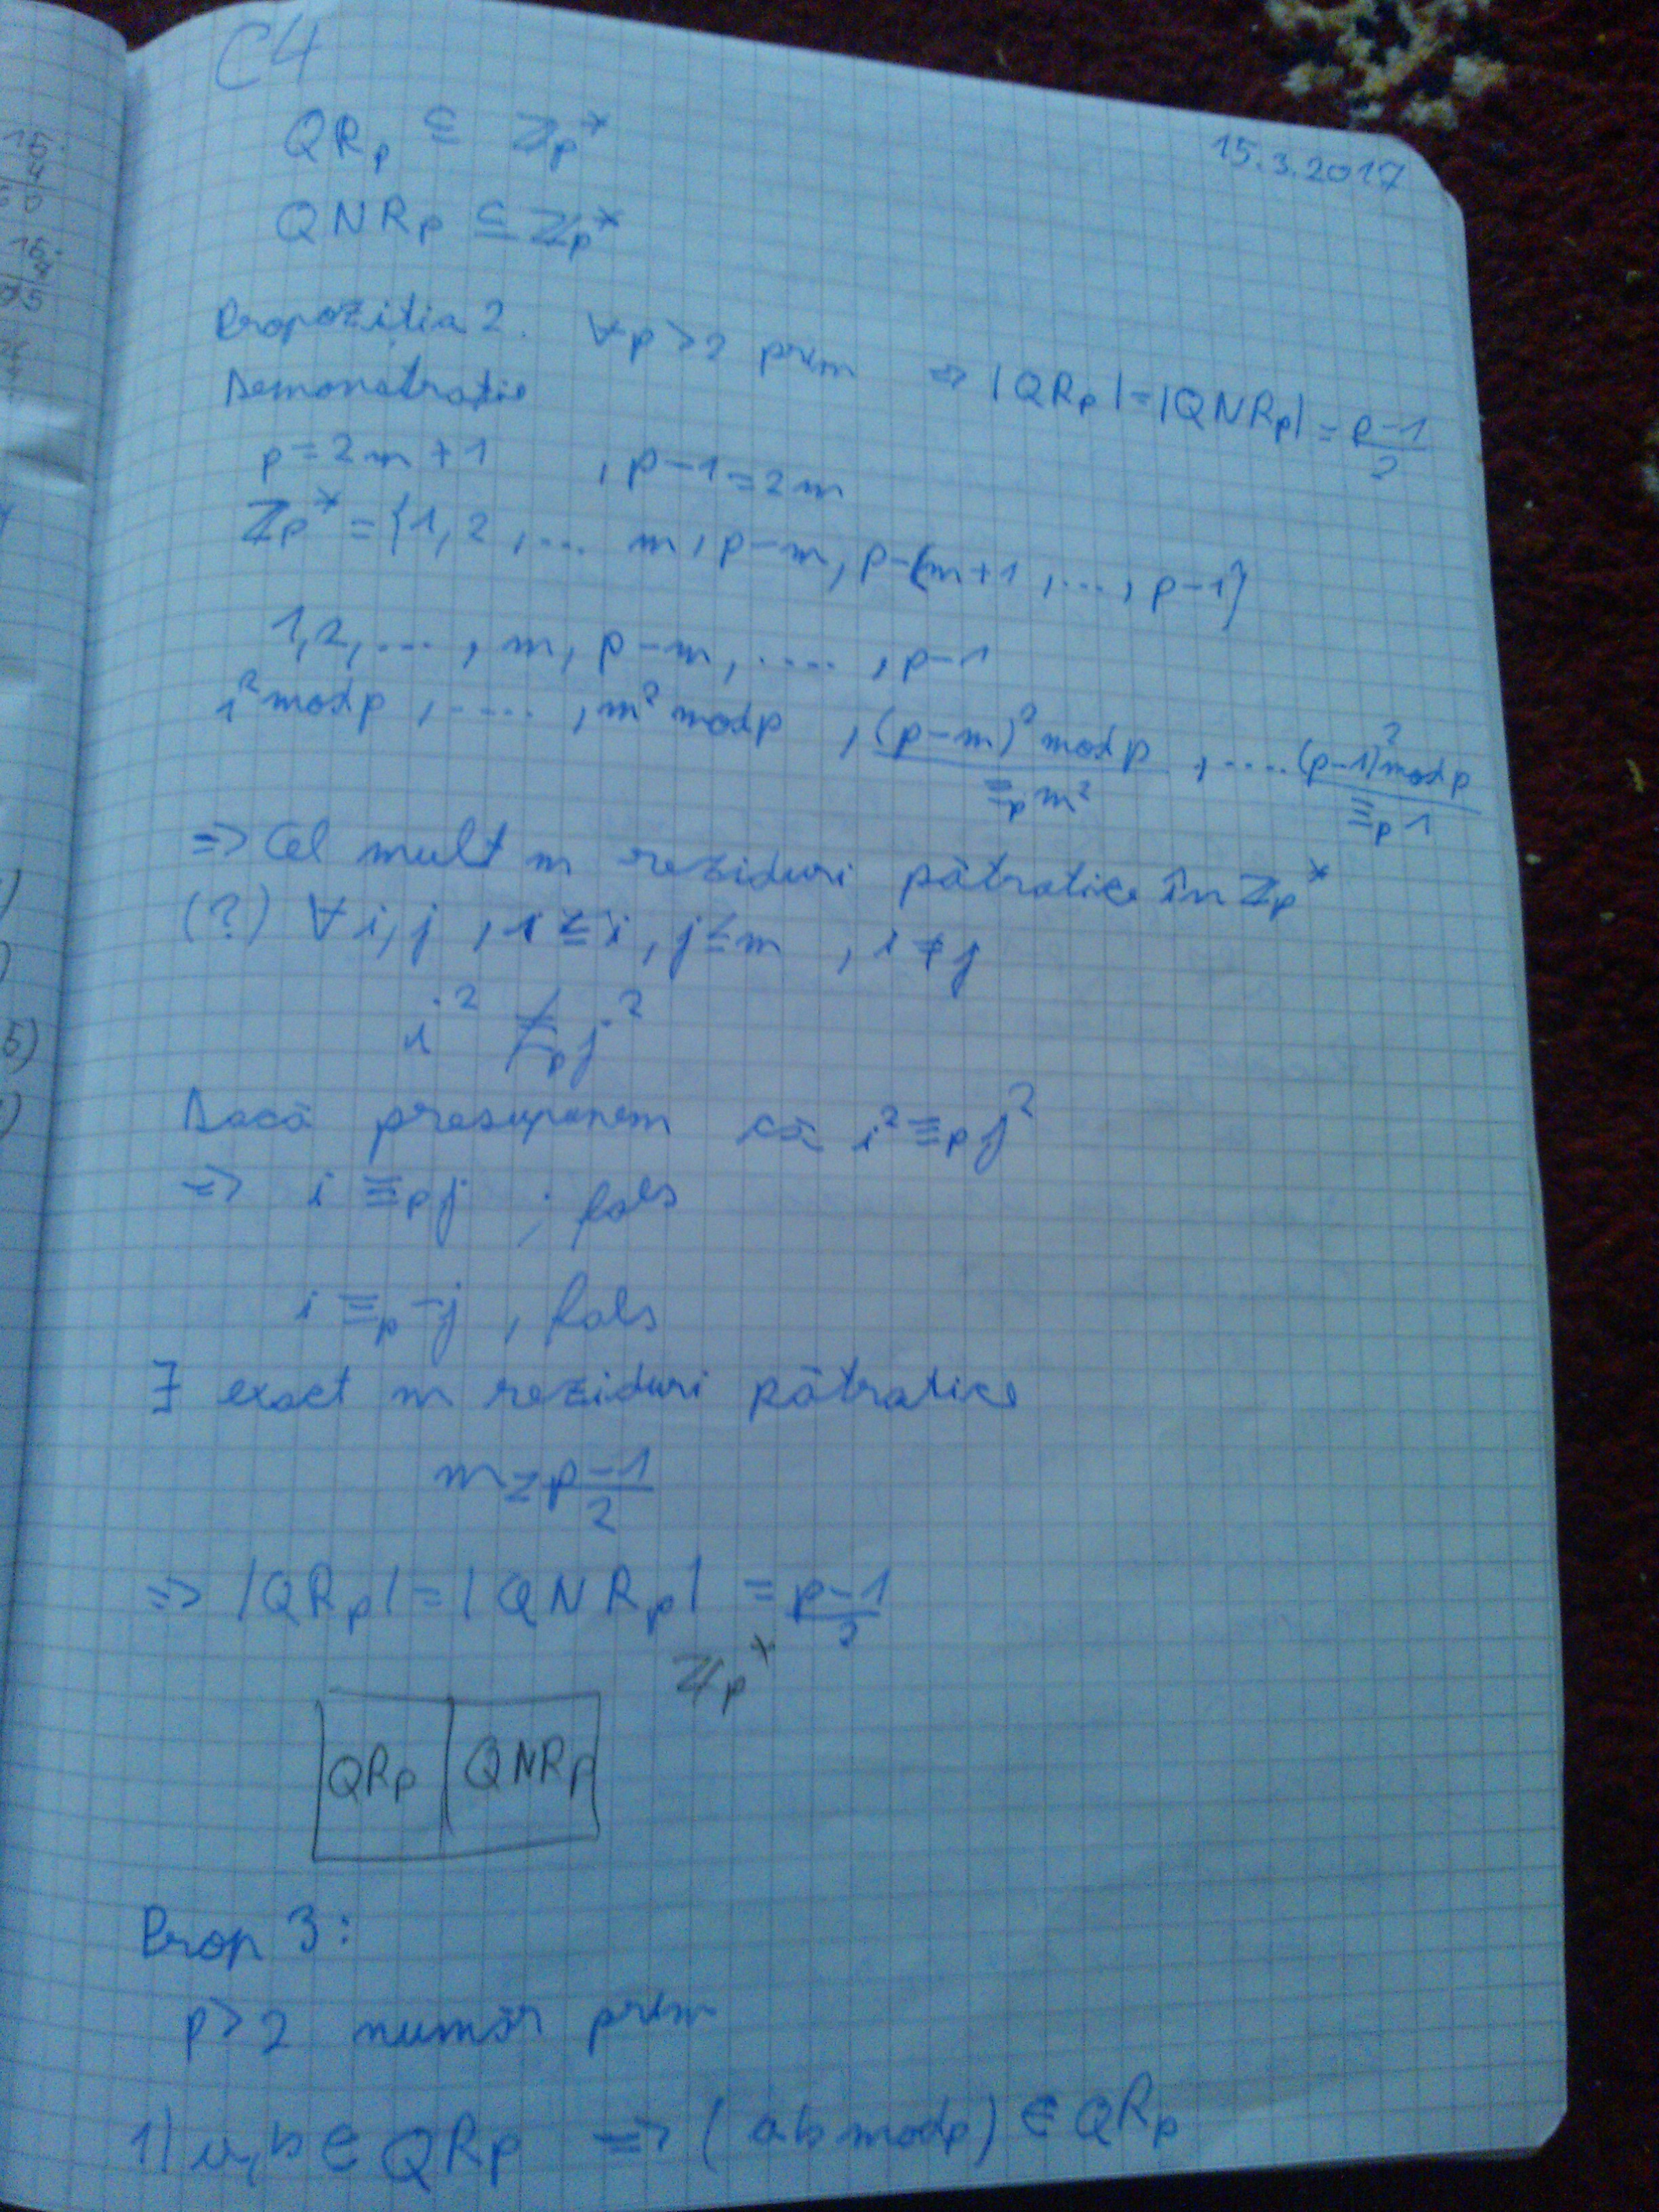 C4
15.3.2017
QRp ⊆ Zp*
QNRp ⊆ Zp*
Propoziția 2. ∀p>2 prim => |QRp|=|QNRp|=p-1/2
Demonstrație
p=2m+1 , p-1=2m
Zp* = {1,2,... m, p-m, p-(m+1,..., p-1}
1,2,..., m, p-m, ...., p-1
1² mod p, ....., m² mod p, (p-m)² mod p, ....(p-1)² mod p
≡p m² ≡p 1
=> Cel mult m reziduri pătratice în Zp*
(?) ∀i,j, 1≤i, j≤m, i≠j
i² ≢p j²
Dacă presupunem că i² ≡p j²
=> i ≡p j ; fals
i ≡p -j , fals
∃ exact m reziduri pătratice
m = p-1/2
=> |QRp|=|QNRp| = p-1/2
Zp*
QRp QNRp
Prop 3:
p>2 număr prim
1) a,b ∈ QRp => (ab mod p) ∈ QRp
15.
4
60
15.
4
05
5)